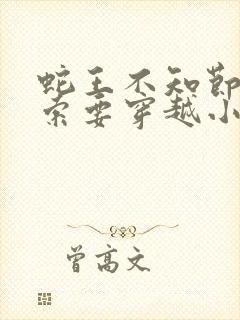 蛇王不知節
索要穿越小
曾高文